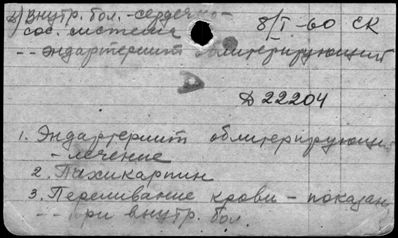 2) внутр. бол. - сердечно-
сос. система 8/I-60 СК
-- эндартериит облитерирующий
Д 22204
1. Эндартериит облитерирующ.
- лечение
2. Пахикарпин
3. Переливание крови - показан.
-- при внутр. бол.